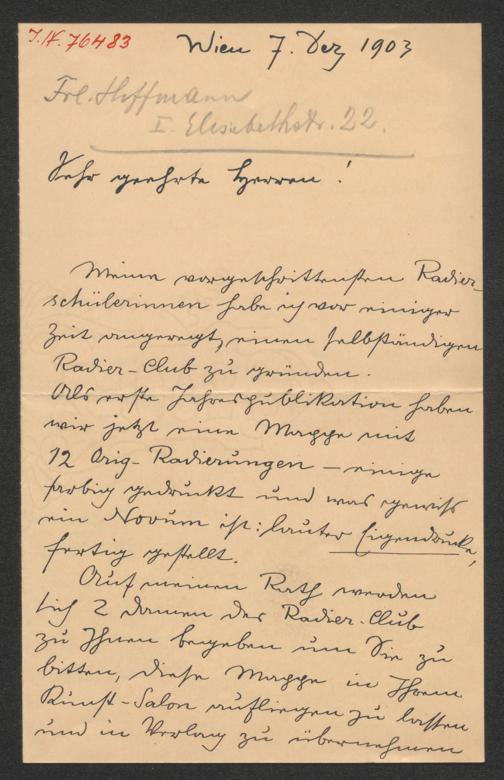 I.N. 76483
Wien 7. Dez 1903
Frl. Hoffmann
I. Elisabethstr. 22.
Sehr geehrte Herren!
Meine vorgeschrittensten Radier-
schülerinnen habe ich vor einiger
Zeit angeregt, einen selbständigen
Radier-Club zu gründen.
Als erste Jahrespublikation haben
wir jetzt eine Mappe mit
12 Orig-Radierungen – einige
farbig gedruckt und was gewiss
ein Novum ist: lauter Eigendrucke,
fertig gestellt.
Auf meinen Rath werden
sich 2 Damen des Radier-Club
zu Ihnen begeben um Sie zu
bitten, diese Mappe in Ihrem
Kunst-Salon aufliegen zu lassen
und in Verlag zu übernehmen